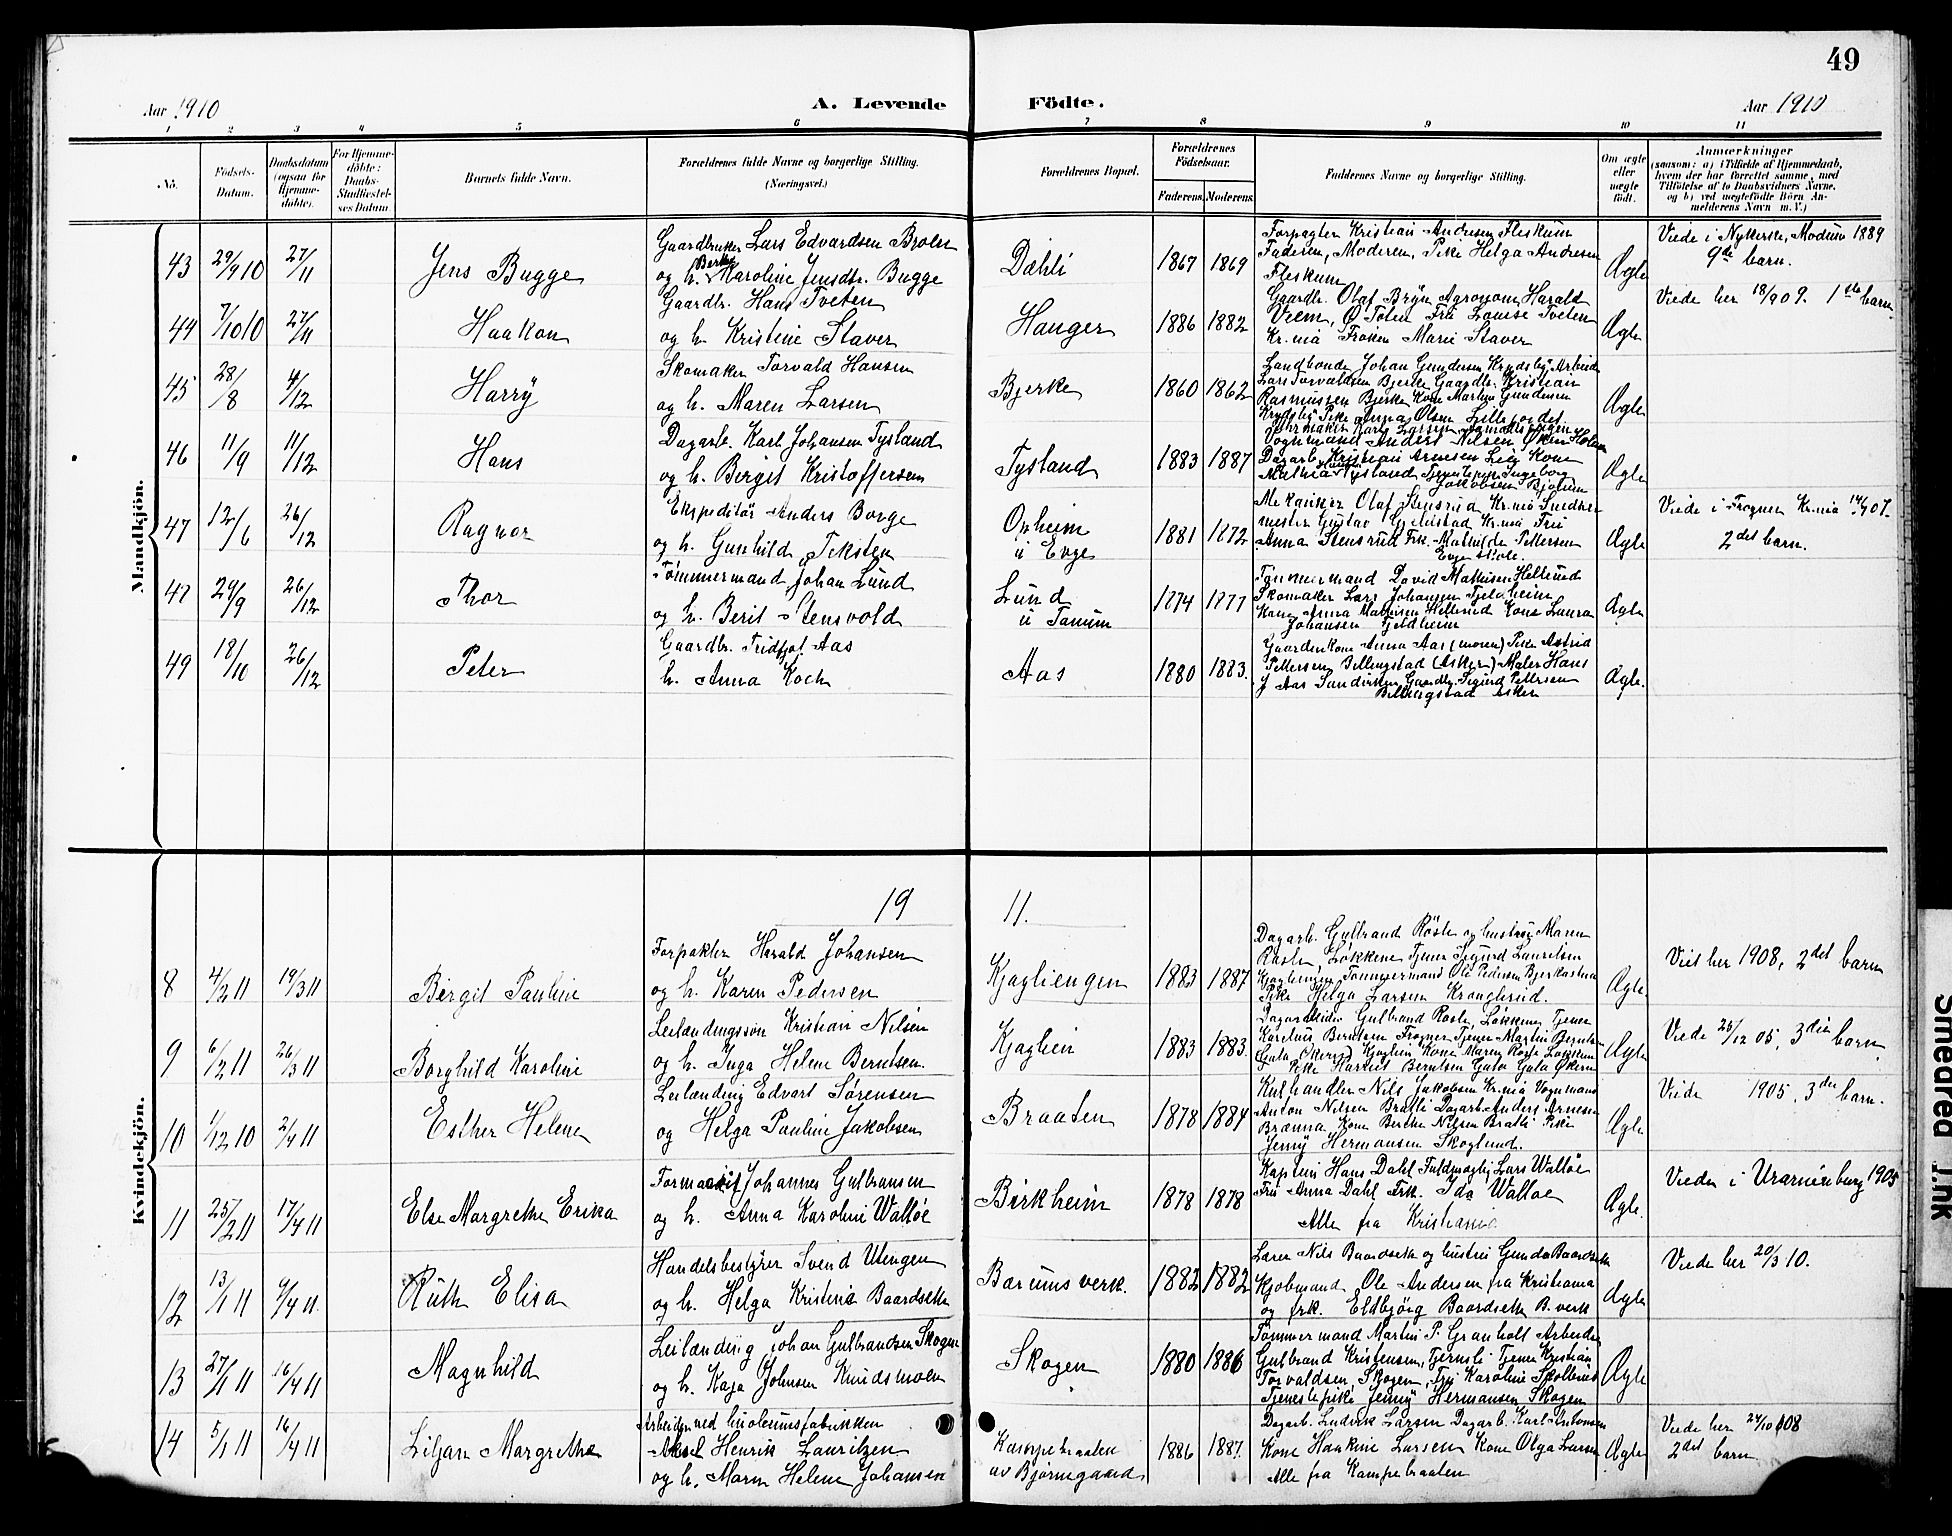 49
Aar 1910 A. Levende Födte. Aar 1910
1 2 3 4 5 6 7 8 9 10 11
No. Födsels-Datum. Daabsdatum (ogsaa for Hjemmedöbte). For Hjemmedöbte: Daabs-Stadfæstelses Datum. Barnets fulde Navn. Forældrenes fulde Navne og borgerlige Stilling. (Næringsvei.) Forældrenes Bopæl. Forældrenes Födselsaar. Faderens Moderens Faddernes Navne og borgerlige Stilling. Om ægte eller uægte födt. Anmærkninger
(saasom: a) i Tilfælde af Hjemmedaab, hvem der har forrettet samme, med Tilföielse af to Daabsvidners Navne, og b) ved uægtefödte Börn Anmelderens Navn m. V.)
Mandkjön.
43 29/9 10 27/11 Jens Bugge
Gaardbruker Lars Edvardsen
og h. Berthe Karoline Jensdtr. Bugge
Dæhli 1867 1869
Forpagter Kristian Andresen Fleskum
Faderen, Moderen, Pike Helga Andresen
Fleskum
Ægte
Viede i Nykerke, Modum 1889
9de barn.
44 7/10 10 27/11 Haakon
Gaardbr. Hans Tveten
og h. Kristine Staver
Hauger 1886 1882
Gaardbr. Olaf Bryn Agronom Harald
Veem, Ø Toten Fru Louise Tveten
Kr.nia Frøken Marie Staver
Ægte
Viede her 18/9 09. 1ste barn
45 28/8 4/12 Harry
Skomaker Torvald Hansen
og h. Maren Larsen
Bjerke 1860 1862
Landbonde Johan Gundersen Krydsby Arbeid
Lars Torvaldsen Bjerke Gaardbr. Kristian
Rasmussen Bjerke Kone Martin Gundersen
Krydsby Pike Anna Olsen
Ægte
46 11/9 11/12 Hans
Dagarb. Karl Johansen Tysland
og h. Bergit Kristoffersen
Tysland 1883 1887
Vognmand Anders Nilsen
Dagarb. Kristian Arnesen Kone
Mathea Tysland Ingeborg
Jakobsen
Ægte
47 12/6 26/12 Ragnar
Ekspeditör Anders Borge
og h. Gunhild Teksten
Opheim
i Evje 1881 1872
Mekaniker Olaf Stensrud Kr.nia
mester Gustav Kr.nia Fru
Anna Stensrud Frk. Mathilde Pettersen
Evje skole.
Ægte
Viede i Frogner Kr.nia 14/4 07.
2det barn.
48 29/9 26/12 Thor
Tømmermand Johan Lund
og h. Berit Stensvold
Lund
i Tanum 1874 1877
Tømmermand David Mathisen Hellerud
Skomaker Lars Johansen Fjeldheim
Kone Anna Mathisen Hellerud Kone Laura
Johansen Fjeldheim
Ægte
49 18/10 26/12 Peter
Gaardbr. Fridtjof Aas
h. Anna Koch
Aas 1880 1883.
Gaarderkone Anna Aas (moren) Pike Astrid
Pettersen Billingstad (Asker) Maler Hans
J Aas Sandviken, Gaardbr. Sigurd Pettersen
Billingstad Asker
Ægte.
Kvindekjön.
19 11.
8 4/2 11 19/3 11 Birgit Pauline
Forpakter Harald Johansen
og h. Karen Pedersen
Kjagliengen 1883 1887
Dagarb. Gulbrand Röste og hustru Maren
Røste, Løkkene Tjener Sigurd Lauritsen
Kjagliengen Tømmermand Ole Pedersen
Pike Helga Larsen Kronglerud.
Ægte
Viet her 1908, 2det barn
9 6/2 11 26/3 11 Borghild Karoline
Leilændingssøn Kristian Nilsen
og h. Inga Helene Berntsen.
Kjaglien 1883 1883.
Dagarbeider Gulbrand Røste, Løkkene, Tjener
Karelius Berntsen Frogner Tjener Martin Berntsen
Kjaglien Kone Maren Røste Løkken
Pike Berntsen
Ægte
Viede 25/12 05, 3die barn
10 1/12 10 2/4 11 Esther Helene
Leilænding Edvart Sørensen
og Helga Pauline Jakobsen
Braaten 1878 1884
Kulhandler Nils Jakobsen Kr.nia Vognmand
Anton Nilsen Bratli Dagarb. Anders Arnesen
Brænna Kone Berthe Nilsen Bratli Pike
Jenny Hermansen Skoglund.
Ægte
Viede 1905, 3die barn.
11 25/2 11 17/4 11 Else Margrethe Erika
Johannes Gulbransen
og h. Anna Karoline Walløe
Birkheim 1878 1878
Kaptein Hans Dahl Fuldmægtig Lars Walløe
Fru Anna Dahl Frk. Ida Walløe
Alle fra Kristiania
Ægte.
Viede i Uranienborg 1905
12 13/1 11 9/4 11. Ruth Elisa
Handelsbestyrer Svend Utengen
og h. Helga Kristine Baardseth
Bærums verk. 1882 1882
Lærer Nils Baardseth og hustru Gunda Baardseth
Kjøbmand Ole Andersen fra Kristiania
og frk. Eldbjørg Baardseth B. verk
Ægte
Viede her 20/3 10.
13 27/1 11 16/4 11 Magnhild
Leilænding Johan Gulbrandsen Skogen
og h. Kaja Johnsen Knudsmoen
Skogen 1880 1886
Tømmermand Martin P. Granholt Arbeider
Gulbrand Kristensen, Tjernsli Tjener Kristian
Torvaldsen, Skogen, Fru Karoline
Tjenestepike Jenny Hermansen Skogen
Ægte
14 5/1 11 16/4 11 Liljan Margrethe
Arbeider ved huolerumsfabrikken
Aksel Henrik Lauritzen
og h. Maren Helene Johansen
Kampebraaten
av Bjørnegaard 1886 1887.
Dagarb. Ludvik Larsen Dagarb. Karl Antonsen
Kone Haakine Larsen Kone Olga Larsen
Alle fra Kampebraaten
Ægte
Viede her 24/10 08
2det barn
Smeared Ink